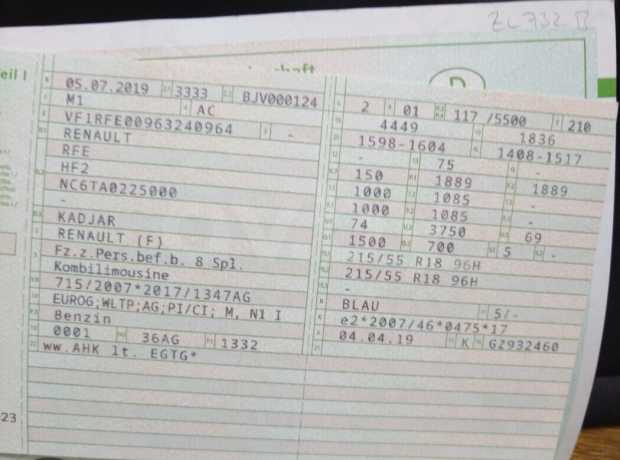 ZL 732 B
eil I
05.07.2019 3333 BJV000124
M1 AC
VF1RFE00963240964 -
RENAULT
RFE
HF2
NC6TA0225000
-
KADJAR
RENAULT (F)
Fz.z.Pers.bef.b. 8 Spl.
Kombilimousine
715/2007*2017/1347AG
EUROG;WLTP;AG;PI/CI; M, N1 I
Benzin
0001 36AG 1332
ww.AHK lt. EGTG*
2 01 117 /5500 210
4449 1836
1598-1604 1408-1517
- 75 -
150 1889 1889
1000 1085 -
1000 1085 -
74 3750 69
1500 700 5 -
215/55 R18 96H
215/55 R18 96H
-
BLAU 5/-
e2*2007/46*0475*17
04.04.19 K GZ932460
23